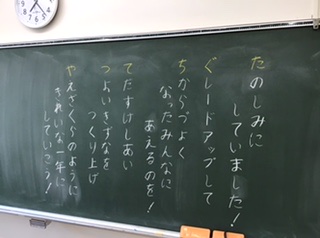 たのしみに
していました！
ぐレードアップして
ちからづよく
なったみんなに
あえるのを！
てだすけしあい
つよいきずなを
つくり上げ
やえざくらのように
きれいな一年に
していこう！